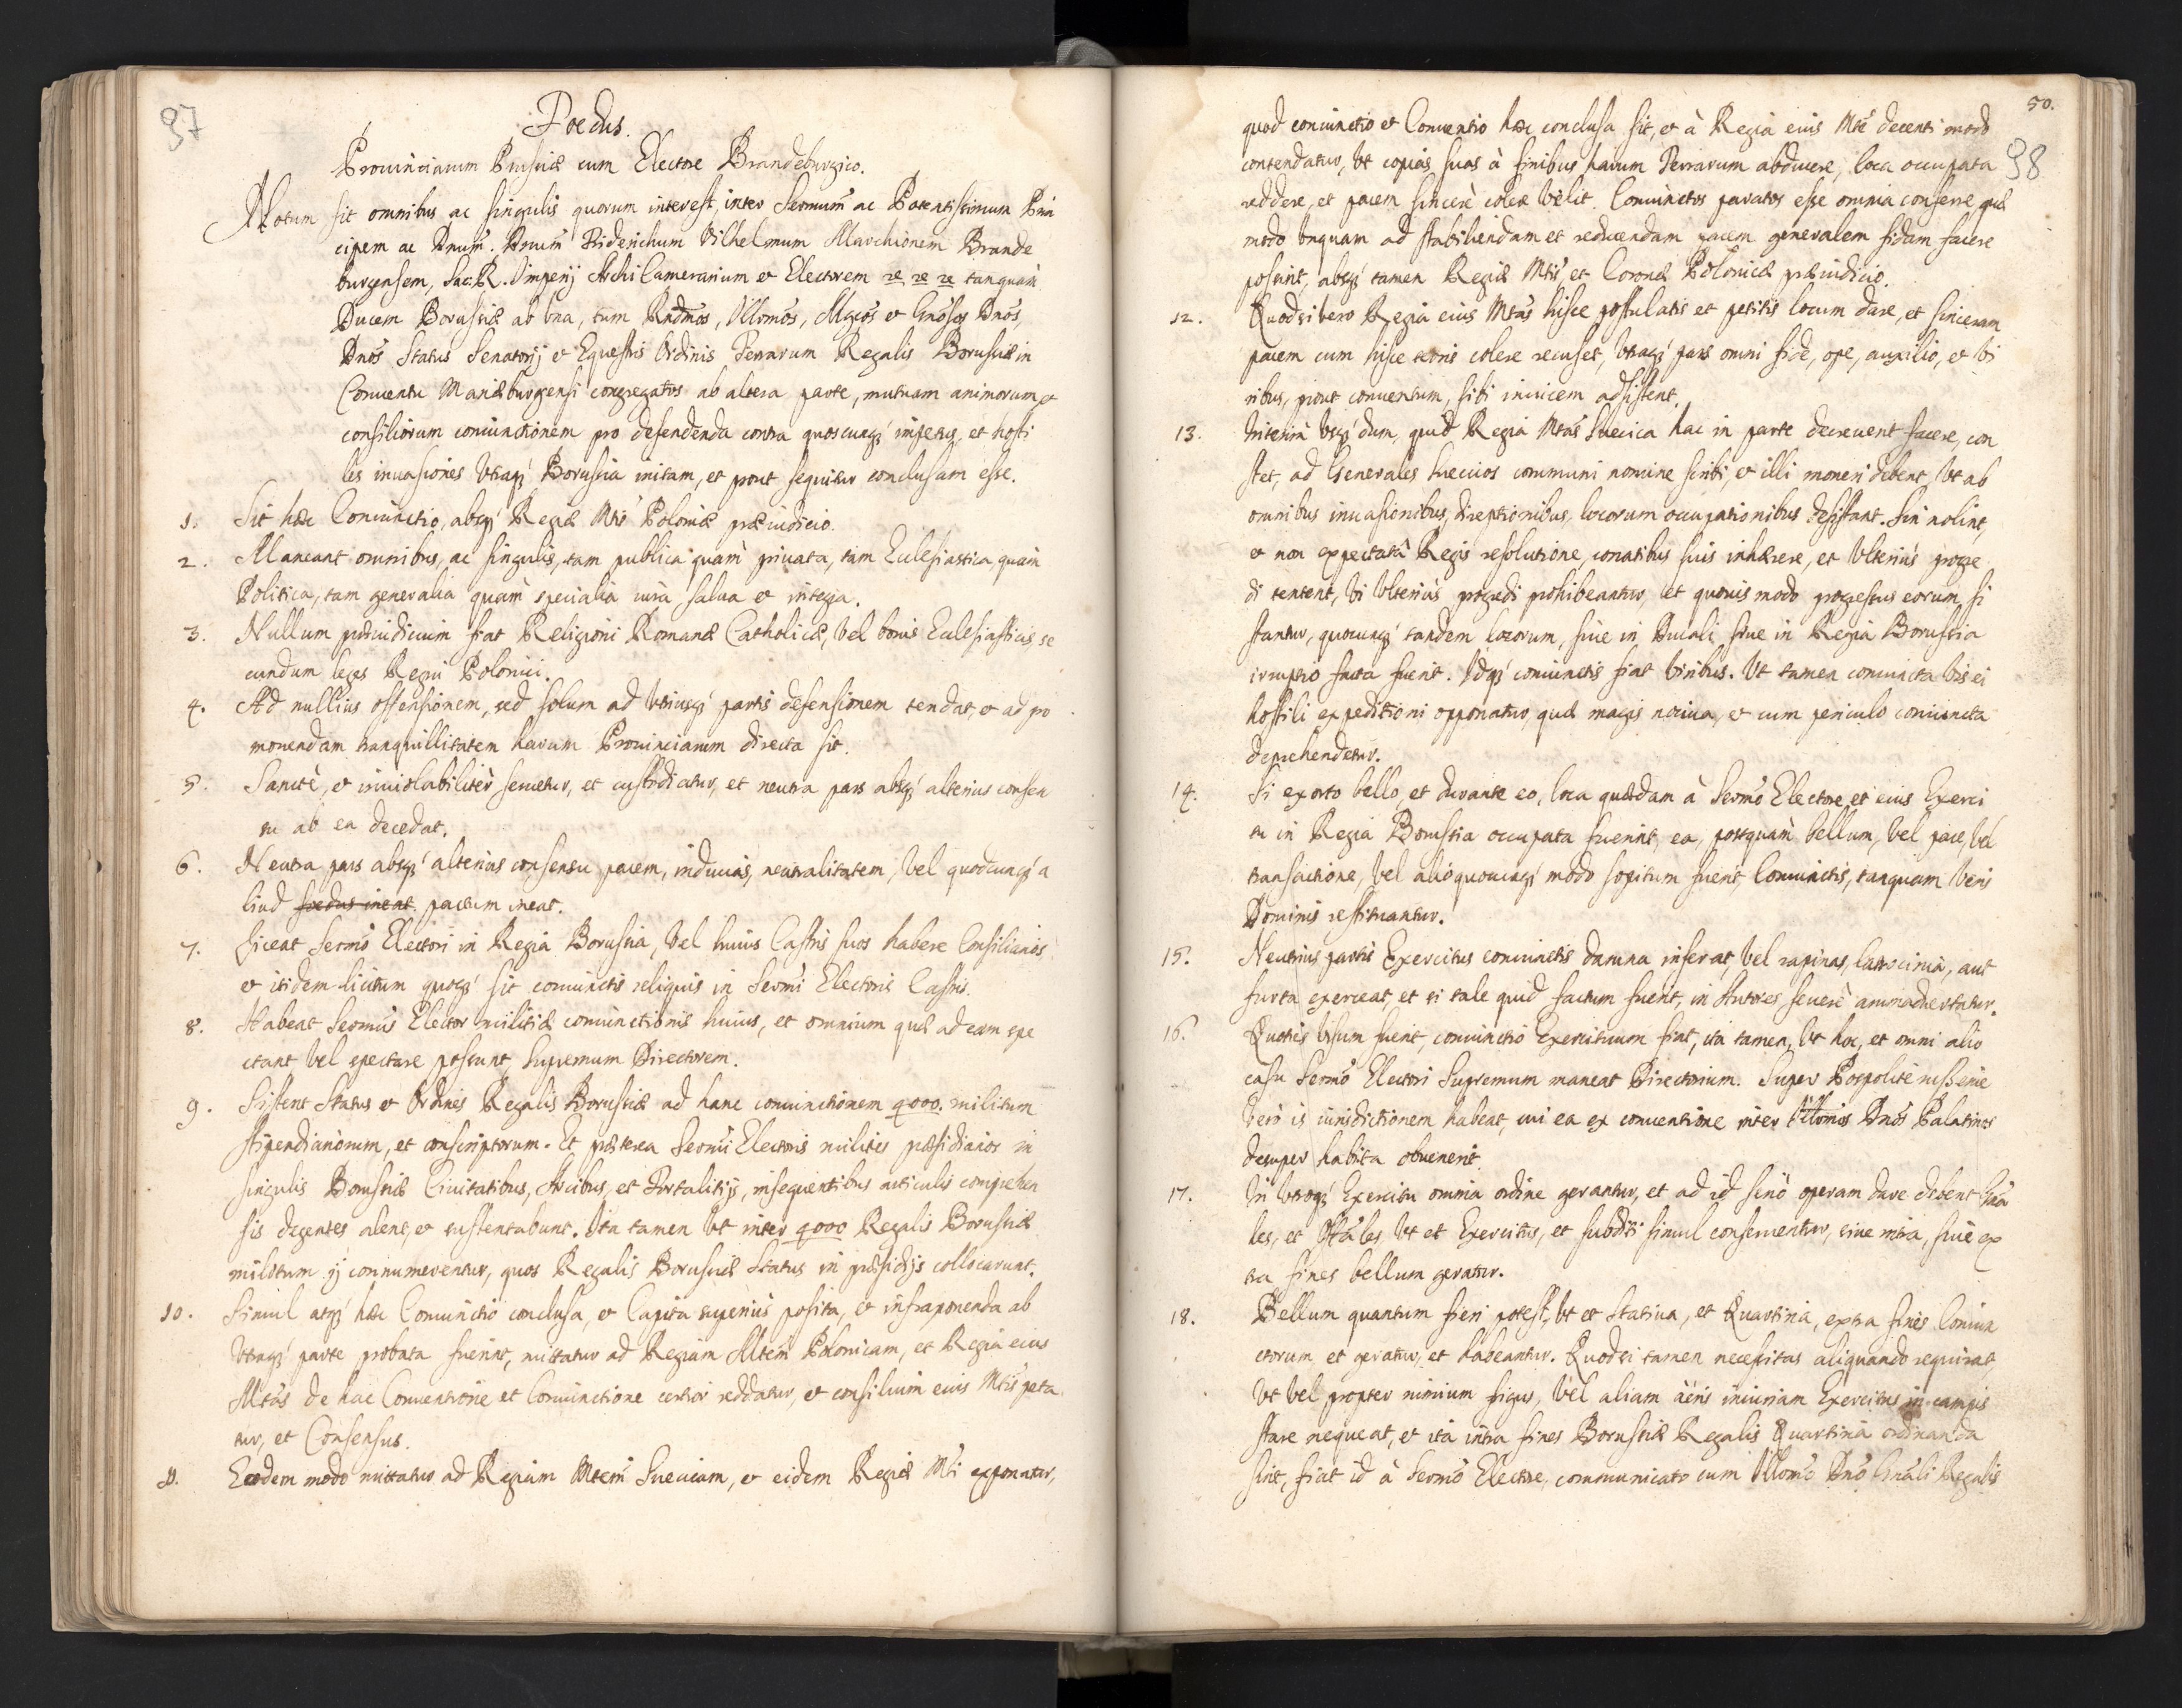 97
Foedus.
Prouinciarum Prussiæ cum Electore Brandeburgico.
Notum sit omnibus ac singulis quorum interest, inter Sermum ac Potentissimum Prin
cipem ac Dnum. Dnum Friderichum Vilhelmum Marchionem Brande
burgensem, Sac. R. Imperij Archi Camerarium et Electorem &c &c &c tanquam
Ducem Borussiæ ab una, tum Rndmos, Illmos, Mgcos et Gnosos Dnos,
Dnos Status Senatorij et Equestris Ordinis Terrarum Regalis Borussiæ in
Conuentu Mariæburgensi congregatos ab altera parte, mutuam animorum et
consiliorum coniunctionem pro defendenda contra quoscunq́ impetus, et hosti
les inuasiones Vtraq́ Borussia initam, et prout sequitur conclusam esse.
1. Sit hæc Coniunctio, absq́ Regiæ Mtis Poloniæ præiudicio.
2. Maneant omnibus, ac singulis, tam publica quàm priuata, tam Eclesiastica, quàm
Politica, tam generalia quàm specialia iura salua et integra.
3. Nullum præiudicium fiat Religioni Romanæ Catholicæ, Vel bonis Eclesiasticis, se
cundum leges Regni Polonici.
4. Ad nullius offensionem, sed solum ad Vtriusq́ partis defensionem tendat, et ad pro
mouendam tranquillitatem harum Prouinciarum directa sit.
5. Sanctè, et inuiolabilitèr seruetur, et custodiatur, et neutra pars absq́ alterius consen
su ab ea decedat.
6. Neutra pars absq́ alterius consensu pacem, inducias, neutralitatem, Vel quodcunq́ a
liud foedus ineat pactum ineat.
7. Liceat Sermo Electori in Regia Borussia, Vel huius Castris suos habere Consiliarios
et itidem licitum quoq́ sit coniunctis reliquis in Sermi Electoris Castris.
8. Habeat Sermus Elector militiæ coniunctionis huius, et omnium quæ ad eam spe
ctant Vel spectare possunt, Supremum Directorem.
9. Sistent Status et Ordines Regalis Borussiæ ad hanc coniunctionem 4000. militum
stipendiariorum, et conscriptorum. Et præterea Sermi Electoris milites præsidiarios in
singulis Borussiæ Ciuitatibus, Arcibus, et Fortalitijs, insequentibus articulis comprehen
sis degentes alent, et sustentabunt. Ita tamen Vt inter 4000 Regalis Borussiæ
militum ij connumerentur, quos Regalis Borussiæ Status in præsidijs collocarunt.
10. Simul atq́ hæc Coniunctio conclusa, et Capita superius posita, et infraponenda ab
Vtraq́ parte probata fuerint, mittatur ad Regiam Mtem Polonicam, et Regia eius
Mtas de hac Conuentione et Coniunctione certior reddatur, et consilium eius Mtis peta
tur, et Consensus.
11. Eodem modo mittatur ad Regiam Mtem Sueciam, et eidem Regiæ Mti exponatur,
50.
98
quod coniunctio et Conuentio hæc conclusa sit, et à Regia eius Mte decenti modo
contendatur, Vt copias suas à finibus harum Terrarum abducere, loca occupata
reddere, et pacem sincerè colere Velit. Coniunctos paratos esse omnia conferre quæ
modo Vnquam ad stabiliendam et reducendam pacem generalem fidam facere
possint, absq́ tamen Regiæ Mtis et Coronæ Polonicæ præiudicio.
12. Quodsi Vero Regia eius Mtas hisce postulatis et petitis locum dare, et sinceram
pacem cum hisce terris colere recuset, Vtraq́ pars omni fide, ope, auxilio, et Vi
ribus, prout conuentum, sibi inuicem adsistent.
13. Interim Vsq́ dum, quid Regia Mtas Suecica hac in parte decreuerit facere, con
stet, ad Generales Suecicos communi nomine scribi, et illi moneri debent, Vt ab
omnibus inuasionibus, direptionibus, locorum occupationibus desistant. Sin nolint,
et non expectatâ Regis resolutione, conatibus suis inhærere, et Vlterius progre
di tentent, Vi Vlterius progredi prohibeantur, et quouis modo progressus eorum si
stantur, quocunq́ tandem locorum, siue in Ducali siue in Regia Borussia
irruptio facta fuerit. Idq́ coniunctis fiat Viribus. Vt tamen coniuncta Vis ei
hostili expeditioni opponatur, quæ magis nociua, et cum periculo coniuncta
deprehendetur.
14. Si exorto bello, et durante eo, loca quædam à Sermo Electore, et eius Exerci
tu in Regia Borussia occupata fuerint, ea, postquàm bellum, Vel pace, Vel
transactione, Vel alio quocunq́ modo sopitum fuerit, Coniunctis, tanquam Veris
Dominis restituantur.
15. Neutrius partis Exercitus coniunctis damna inferat, Vel rapinas, latrocinia, aut
furta exerceat, et si tale quid factum fuerit, in Autores seuerè animaduertatur.
16. Quoties Visum fuerit, coniunctio Exercituum fiat, ita tamen, Vt hoc, et omni alio
casu Sermo Electori Supremum maneat Directorium. Super Pospolite russenie
Verò is iurisdictionem habeat, cui ea ex conuentione inter Illmos Dnos Palatinos
desuper habita obuenerit.
17. In Vtroq́ Exercitu omnia ordine gerantur, et ad id seriò operam dare debent Gnã
les, et Offãles, Vt et Exercitus, et subditi simul conseruentur, siue intra, siue ex
tra fines bellum geratur.
18. Bellum quantum fieri potest, Vt et Statiua, et Quartiria, extra fines Coniun
ctorum et geratur, et habeantur. Quodsi tamen necessitas aliquando requirat,
Vt Vel propter nimium frigus, Vel aliam aëris iniuriam Exercitus in campis
stare nequeat, et ita intra fines Borussiæ Regalis Quartiria ordinanda
sint, fiat id à Sermo Electore, communicato cum Illmo Dno Gnãli Regalis